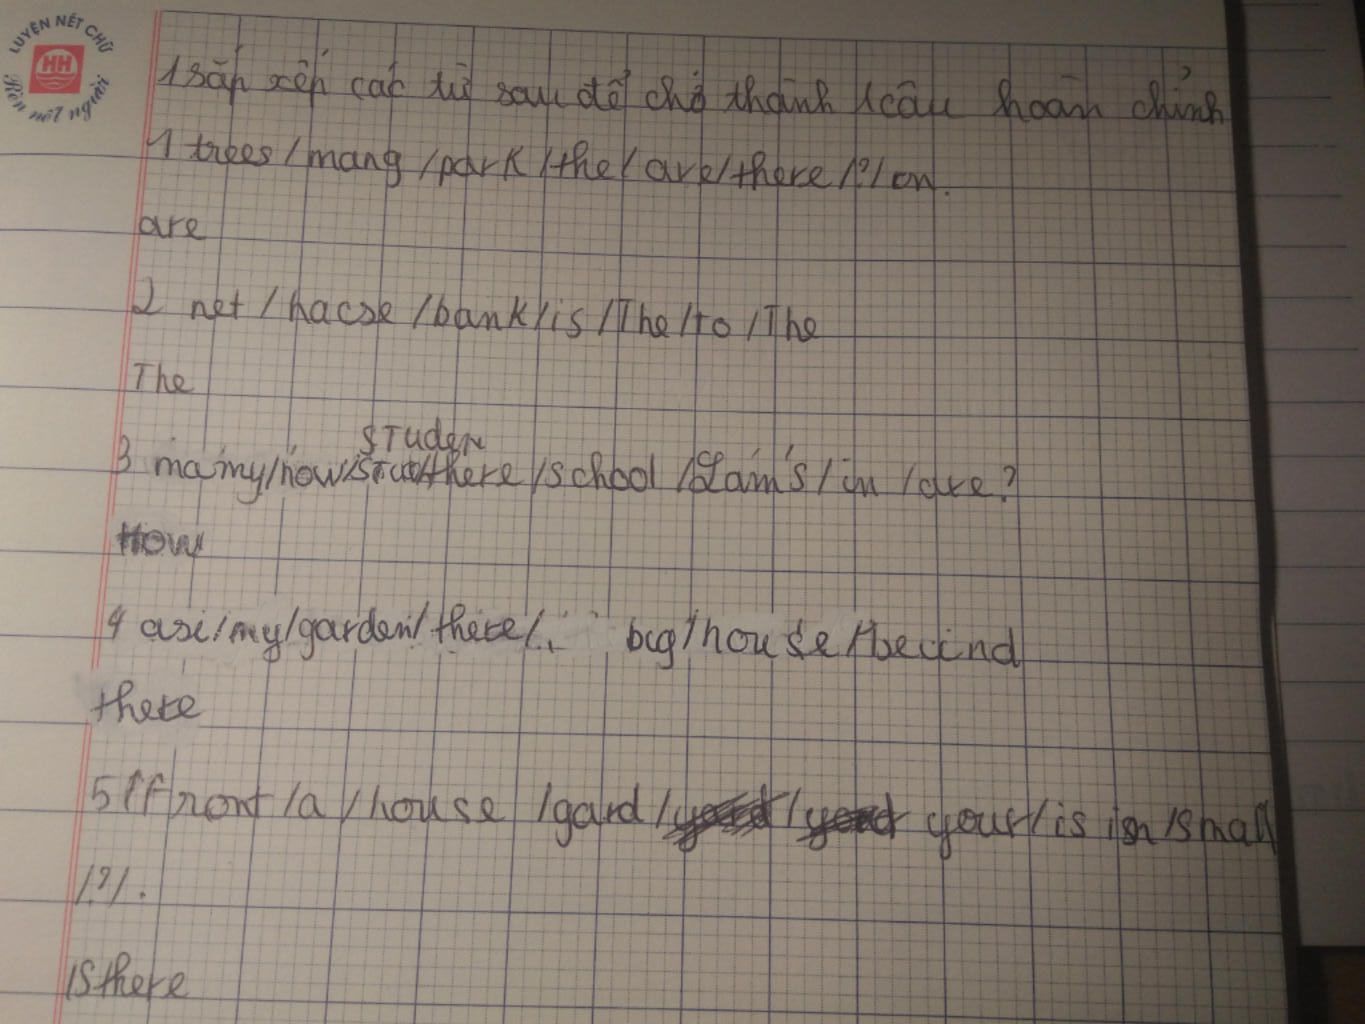 LUYỆN NÉT CHỮ
HH
Rèn nết người
1 sắp xếp các từ sau để chở thành 1 câu hoàn chỉnh
1 trees / mang / park / the / are / there / ? / on.
are
2 net / hacse / bank / is / The / to / The
The
STuden
3 ma my / how / there / school / Lam's / in / are ?
How
4 / my / garden / there / . big / house / becind
there
5 / front / a / house / gard / your / is in / small
/ ? / .
is there